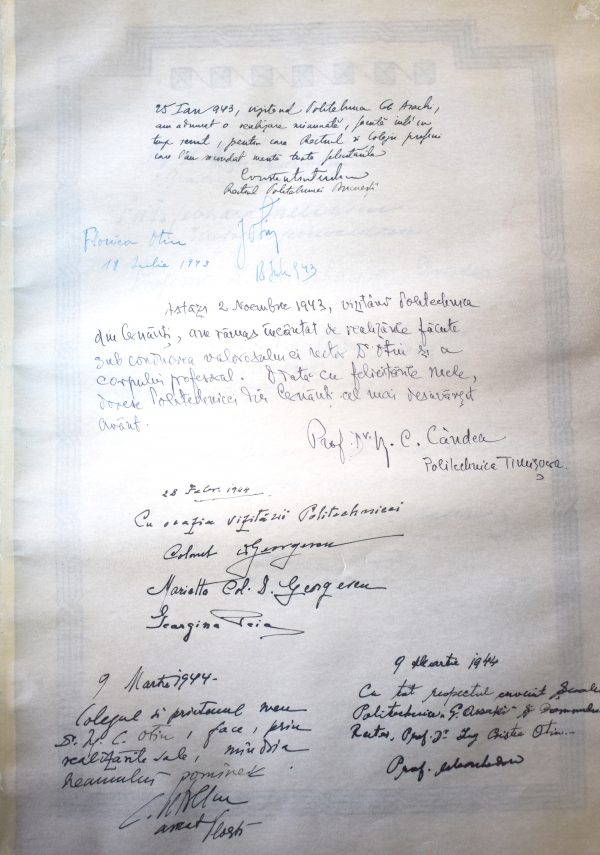 25 Ian 943, vizitand Politehnica Gh Asachi,
am admirat o realizare minunată, facută într'un
timp scurt, pentru care Rectorul si Colegii profesori
care l'au secundat merită toate felicitările
Rectorul Politehnicei Bucureşti
Florica Otin
18 Iulie 1943
18 Iulie 943
Astăzi 2 Noembre 1943, vizitând Politechnica
din Cernăuți, am rămas încântat de realizările făcute
sub conducerea valorosului ei rector Dl Otin și a
corpului profesoral. Odată cu felicitările mele,
doresc Politechnicei din Cernăuți cel mai desăvârșit
avânt.
Prof. Dr. N. C. Cândea
Politechnica Timișoara.
28 Febr. 1944
Cu ocazia vizitării Politechnicei
Colonel Georgescu
Marietta Col. D. Georgescu
Georgina
9 Martie 1944
Colegul si prietenul meu
D. N. C. Otin, face, prin
realizările sale, mândria
neamului românesc
9 Martie 1944
Cu tot respectul Scoala
Politechnica "G. Assaki" și Domnului
Rector, Prof. Dr. Ing Cristea Otin.
Prof.